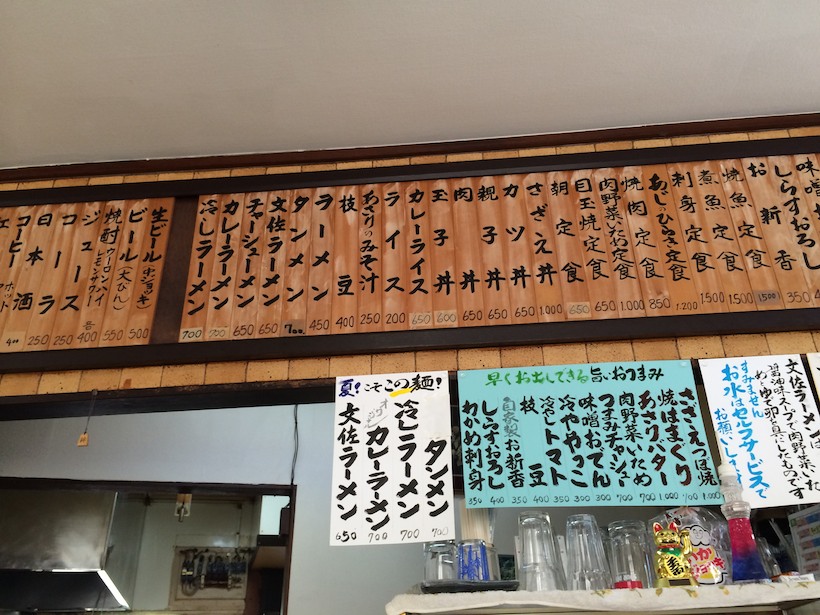 味噌
しらすおろし
お新香 350
焼魚定食 1500
煮魚定食 1500
刺身定食 1500
あじのひらき定食 1200
焼肉定食 850
肉野菜いため定食 1.000
目玉焼定食 650
朝定食 650
さざえ丼 1.000
カツ丼 650
親子丼 650
肉丼 650
玉子丼 600
カレーライス 650
ライス 200
あさりのみそ汁 250
枝豆 400
ラーメン 450
タンメン 700
文佐ラーメン 650
チャーシューメン 650
カレーラーメン 700
冷しラーメン 700
生ビール(中ジョッキ) 500
ビール(大びん) 550
焼酎 ウーロンハイ レモンサワー 各400
ジュース 250
コーラ 250
日本酒 400
コーヒー ホット
夏!こそこの麺!
タンメン 700
冷しラーメン 700
カレーラーメン 700
文佐ラーメン 650
早くお出しできる旨いおつまみ
さざえつぼ焼 1.000
焼はまぐり 700
あさりバター 1.000
肉野菜いため 700
つまみチャーシュー 700
味噌おでん 300
冷ややっこ 300
冷やしトマト 350
枝豆 400
自家製お新香 350
しらすおろし 400
わかめ刺身 350
文佐ラーメンは
醤油味スープで肉野菜いた
めとゆで卵を具にしたものです
すみません
お水はセルフサービスで
お願いします